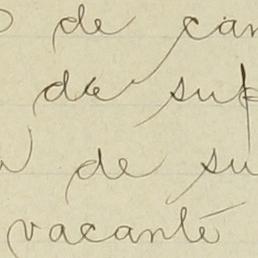 de can
de sup
de su
vacanté